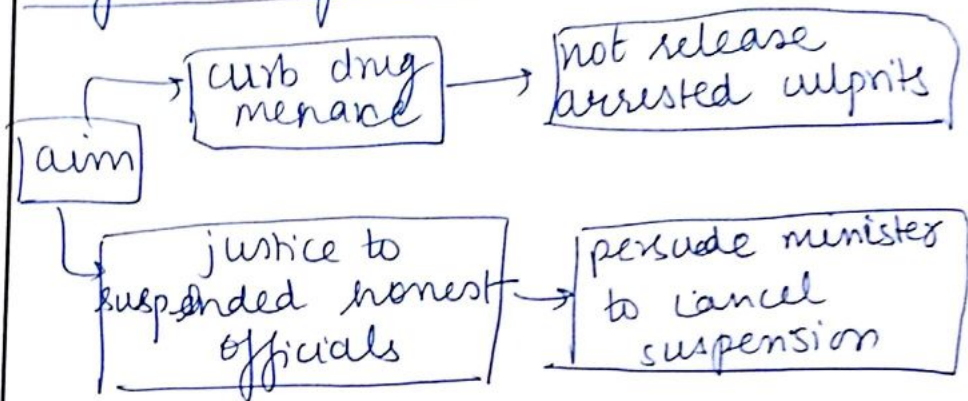 curb drug
menace
not release
arrested culprits
aim
justice to
suspended honest
officials
persuade minister
to cancel
suspension